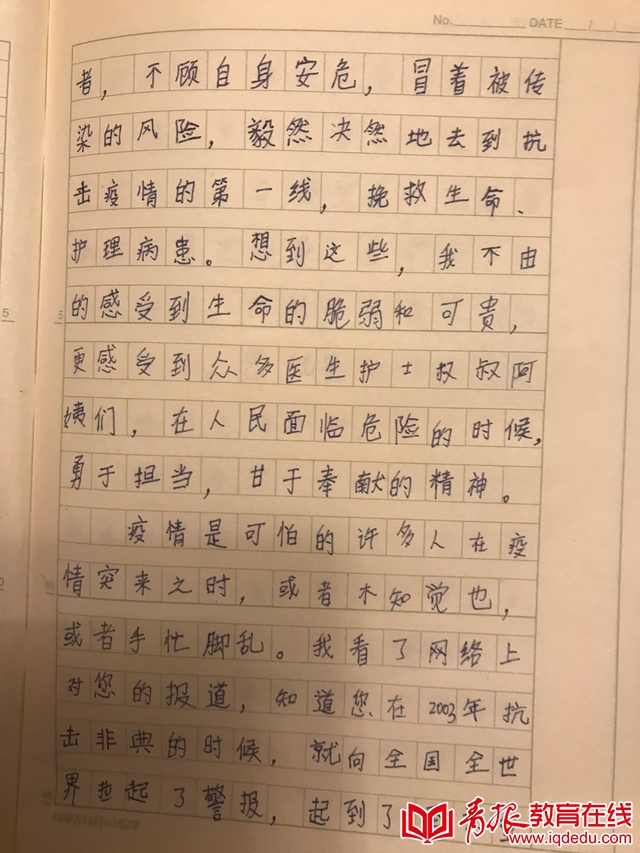 No. DATE
者，不顾自身安危，冒着被传
染的风险，毅然决然地去到抗
击疫情的第一线，挽救生命、
护理病患。想到这些，我不由
的感受到生命的脆弱和可贵，
更感受到众多医生护士叔叔阿
姨们，在人民面临危险的时候，
勇于担当，甘于奉献的精神。
疫情是可怕的许多人在疫
情突来之时，或者木知觉也，
或者手忙脚乱。我看了网络上
对您的报道，知道您在2003年抗
击非典的时候，就向全国全世
界拉起了警报，起到了
青报教育在线
www.iqdedu.com
5
5